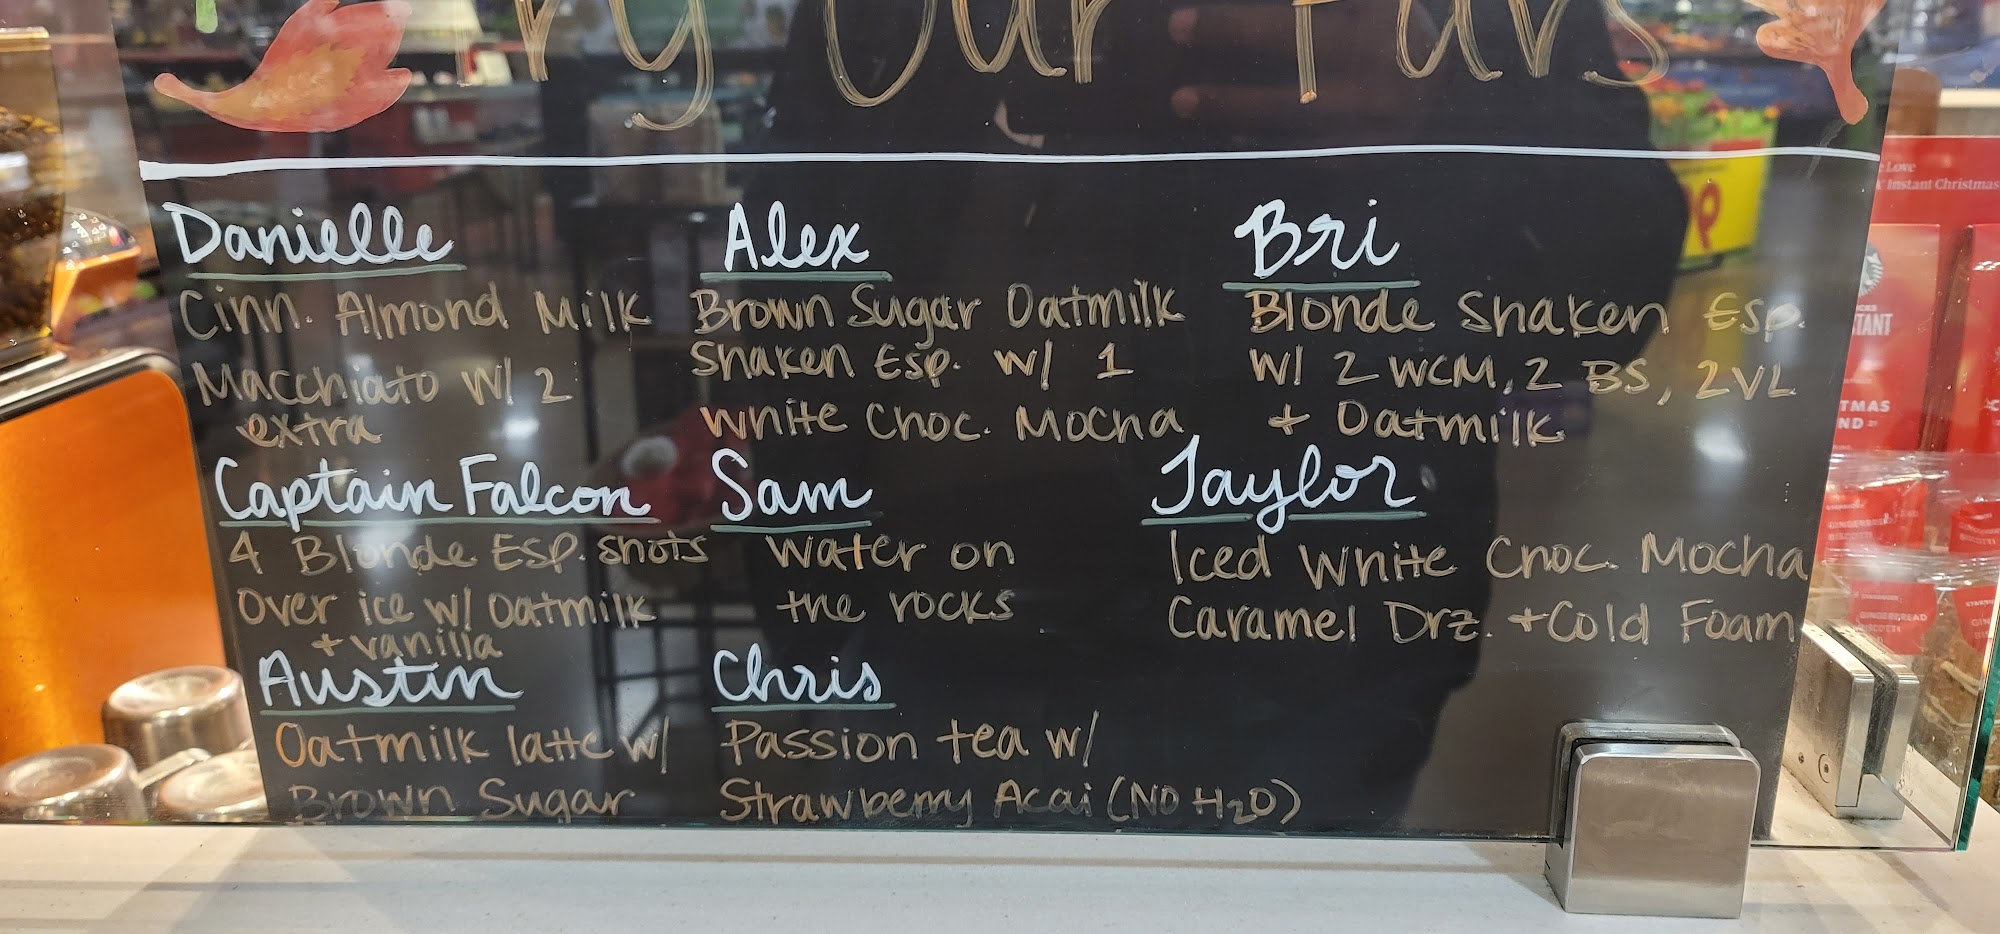 Try Our Favs
Danielle
Cinn. Almond Milk
Macchiato w/ 2
extra
Alex
Brown Sugar Oatmilk
Shaken Esp. w/ 1
White Choc. Mocha
Bri
Blonde Shaken Esp.
w/ 2 WCM, 2 BS, 2VL
+ Oatmilk
Captain Falcon
4 Blonde Esp. shots
Over ice w/ Oatmilk
+ vanilla
Sam
Water on
the rocks
Taylor
Iced White Choc. Mocha
Caramel Drz. + Cold Foam
Austin
Oatmilk latte w/
Brown Sugar
Chris
Passion tea w/
Strawberry Acai (NO H2O)
Love
Instant Christmas
TANT
TMAS
ND
GINGERBREAD
BISCOTTI